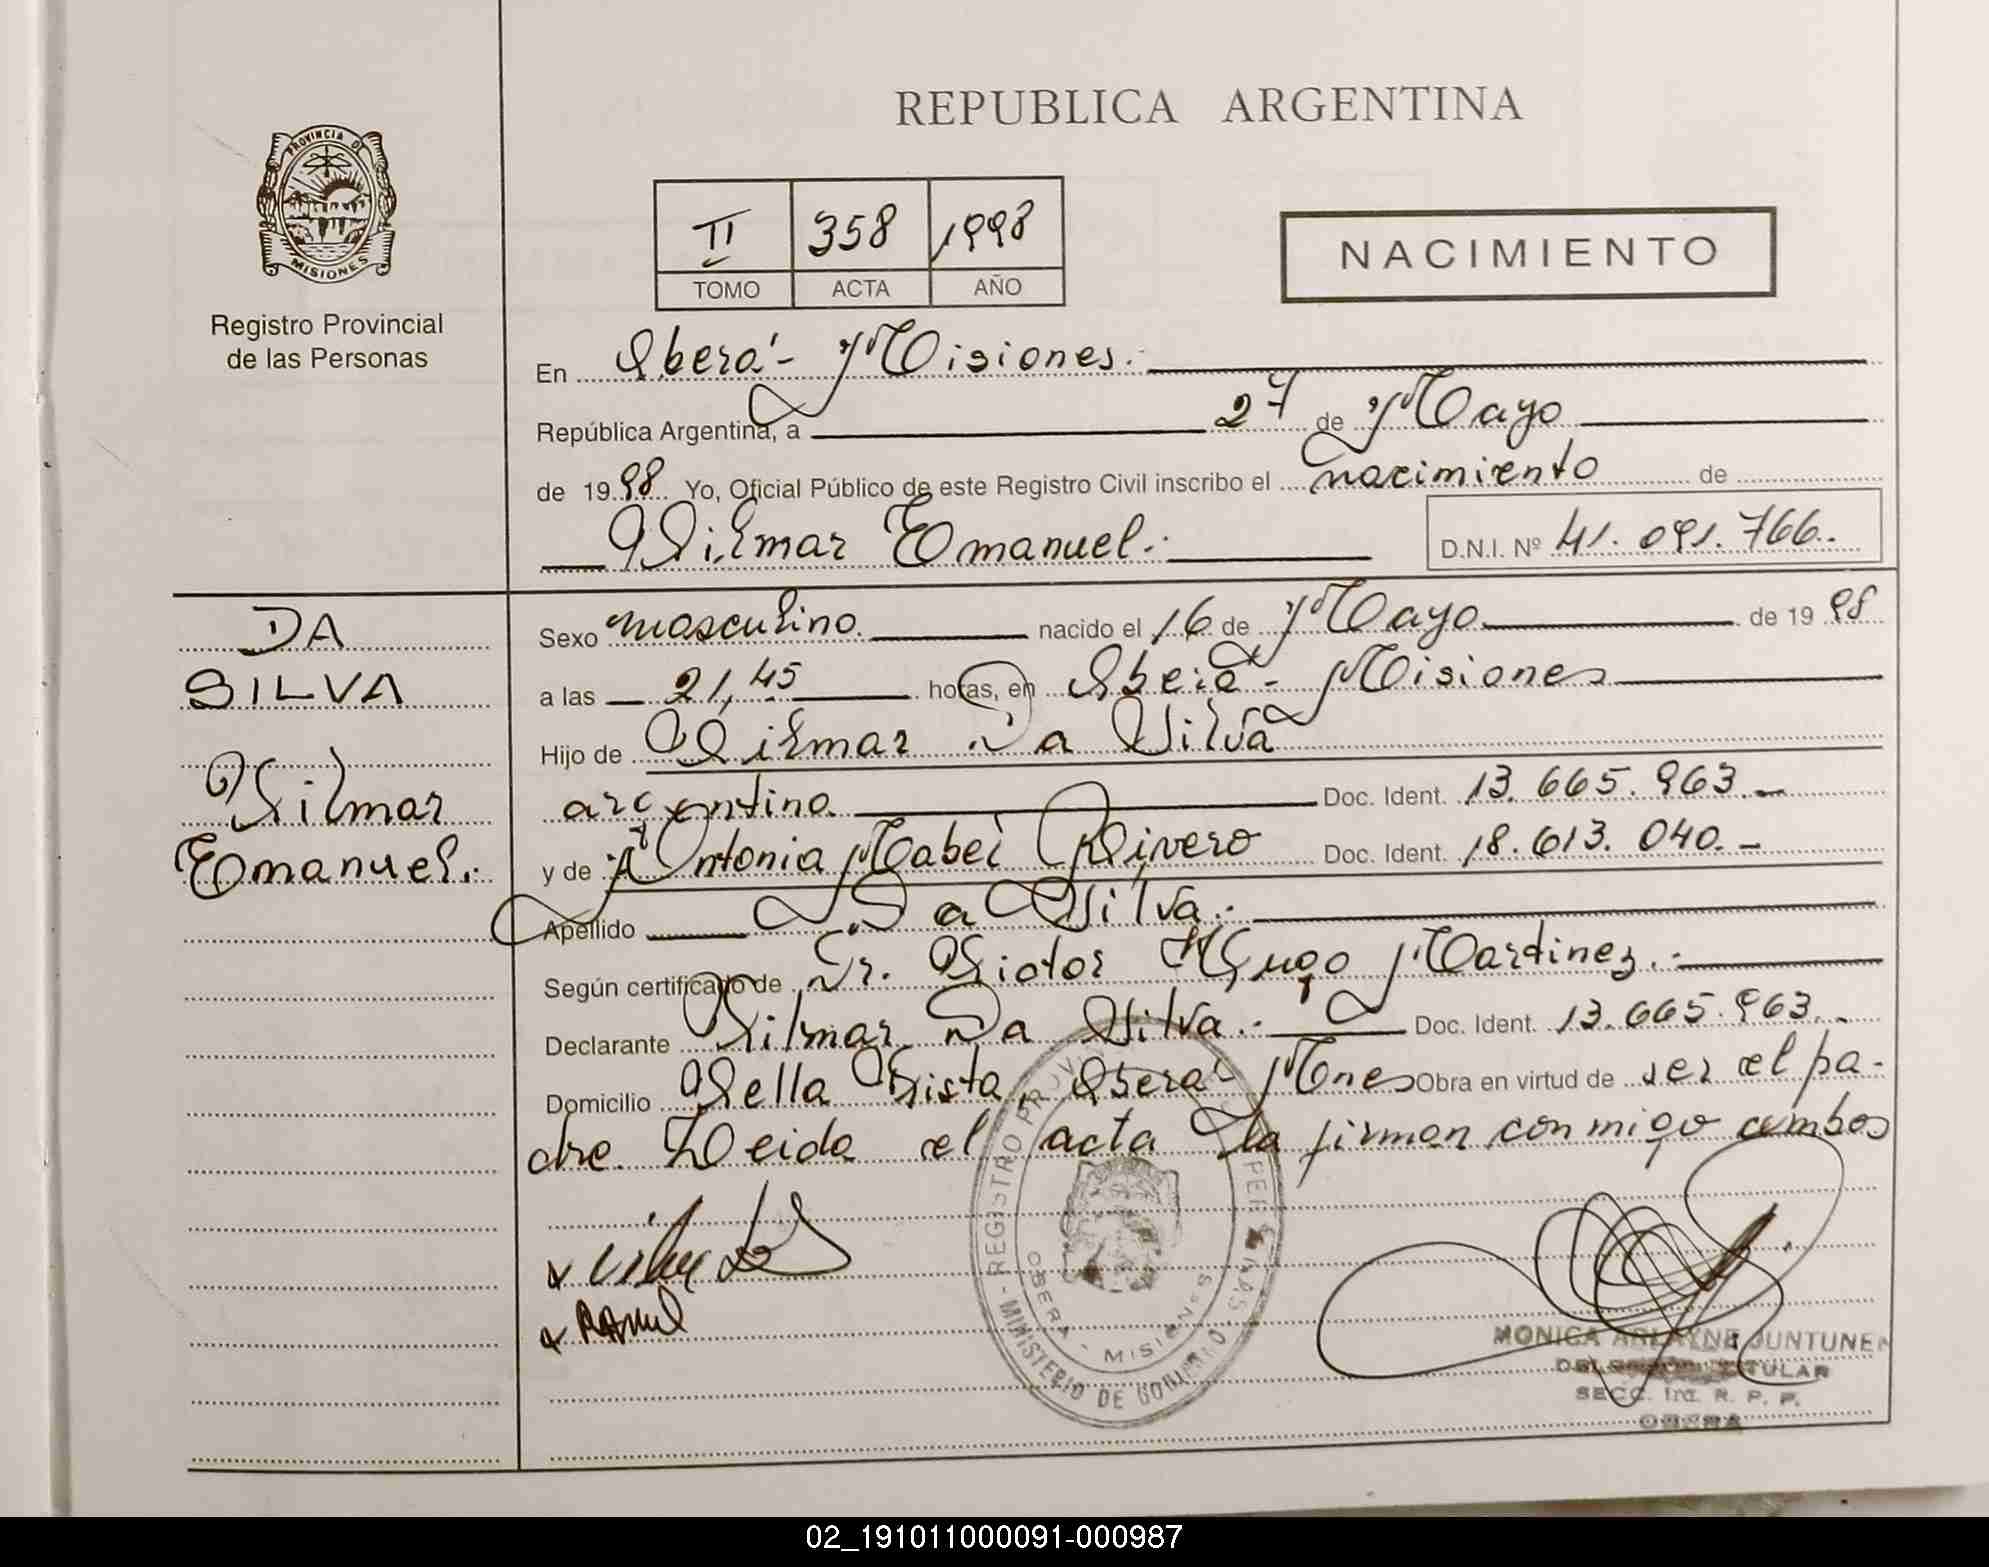 REPUBLICA ARGENTINA
PROVINCIA DE
MISIONES
Registro Provincial
de las Personas
II 358 1998
TOMO ACTA AÑO
NACIMIENTO
En Oberá - Misiones.
República Argentina, a 27 de Mayo
de 1998 Yo, Oficial Público de este Registro Civil inscribo el nacimiento de
Vilmar Emanuel. D.N.I. Nº 41.091.766.
DA
SILVA
Vilmar
Emanuel.
Sexo masculino. nacido el 16 de Mayo de 1998
a las 21,45 horas, en Oberá - Misiones
Hijo de Vilmar Da Silva
argentino Doc. Ident. 13.665.963.-
y de Antonia Mabel Rivero Doc. Ident. 18.613.040.-
Apellido Da Silva.
Según certificado de Dr. Victor Hugo Martinez.
Declarante Vilmar Da Silva. Doc. Ident. 13.665.963.-
Domicilio Bella Vista, Oberá - Mnes Obra en virtud de ser el pa-
dre. Leida el acta la firman conmigo ambos
REGISTRO PROVINCIAL DE LAS PERSONAS
MINISTERIO DE GOBIERNO
OBERA - MISIONES
MONICA ARLAYNE JUNTUNEN
TITULAR
SECC. 1ra. R. P. P.
OBERA
02_191011000091-000987